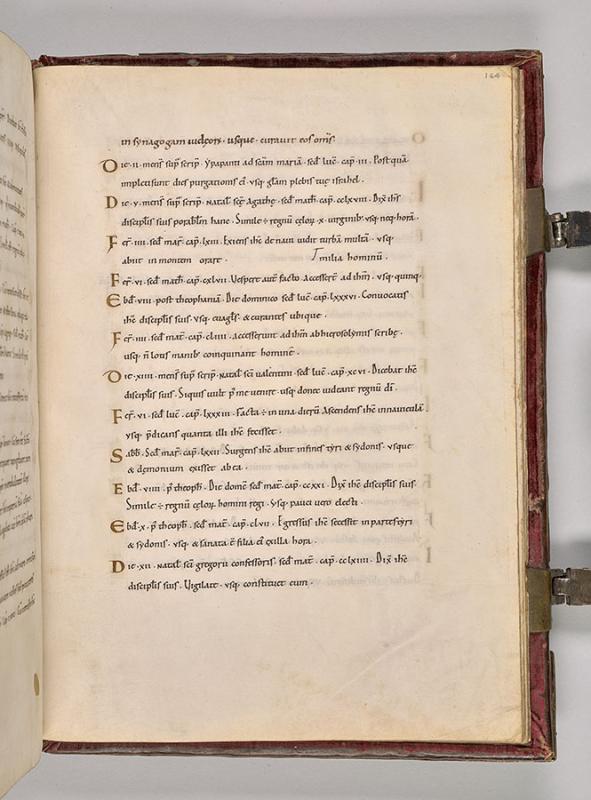 164
in synagogam iudęorū · usque · curauit eos om̄s
Die · ii · mens̄ sup̄ scrip̄ · Ypapanti ad sc̄am mariā · sec̄d luc̄ · cap̄ · iii · Postquā
impleti sunt dies purgationis eī · usq · glām plebis tuę israhel ·
Die · v · mens̄ sup̄ scrip̄ · Natał sc̄ę Agathę · sec̄d math̄ · cap̄ · cclxviii · Dix̄ ih̄s
discipłis suis parabłam hanc · Simile ÷ regnū cęlor̄ · x · uirginib · usq · neq · horā ·
Fer̄ · iiii · sec̄d mar̄ · cap̄ · lxiii · Exiens ih̄c de naui uidit turbā multā · usq
abiit in montem orare · milia hominū ·
Fer̄ · vi · sec̄d math̄ · cap̄ · cxlvii · Uespere aut̄ facto Accesser̄ ad ih̄m · usq · quinq ·
Ebd̄ · viii · post theophaniā · Die dominico sec̄d luc̄ · cap̄ · lxxxvi · Conuocatis
ih̄c discipłis suis · usq · euaglz̄ · & curantes ubique ·
Fer̄ · iiii · sec̄d mat̄ · cap̄ · cliiii · Accesserunt ad ih̄m ab hierosolymis scribę ·
usq · n̄ lotis manib · coinquinant hominē ·
Die · xiiii · mens̄ sup̄ scrip̄ · Natał sc̄i ualentini · sec̄d luc̄ · cap̄ · xcvi · Dicebat ih̄c
discipłis suis · Siquis uult p̄ me uenire · usq · donec uideant regnū dī ·
Fer̄ · vi · sec̄d luc̄ · cap̄ · lxxxiii · Facta ÷ in una dierū Ascendens ih̄c in nauiculā
usq · p̄dicans quanta illi ih̄c fecisset ·
Sabb̄ · Sec̄d mar̄ · cap̄ · lxxii · Surgens ih̄c abiit in fines tyri & sydonis · usque
& demonium exisset ab ea ·
Ebd̄ · viiii · p̄ theoph̄ · Die dom̄c sec̄d mat̄ · cap̄ · ccxxi · Dix̄ ih̄c discipłis suis
Simile ÷ regnū cęlor̄ homini regi · Usq · pauci uero electi ·
Ebd̄ · x · p̄ theoph̄ · sec̄d mat̄ · cap̄ · clvii · Egressus ih̄c secessit in partes tyri
& sydonis · usq · & sanata ē filia eī ex illa hora ·
Die · xii · Natał sc̄i gregorii confessoris · sec̄d mat̄ · cap̄ · cclxiiii · Dix̄ ih̄c
discipłis suis · Uigilate · usq · constituet eum ·